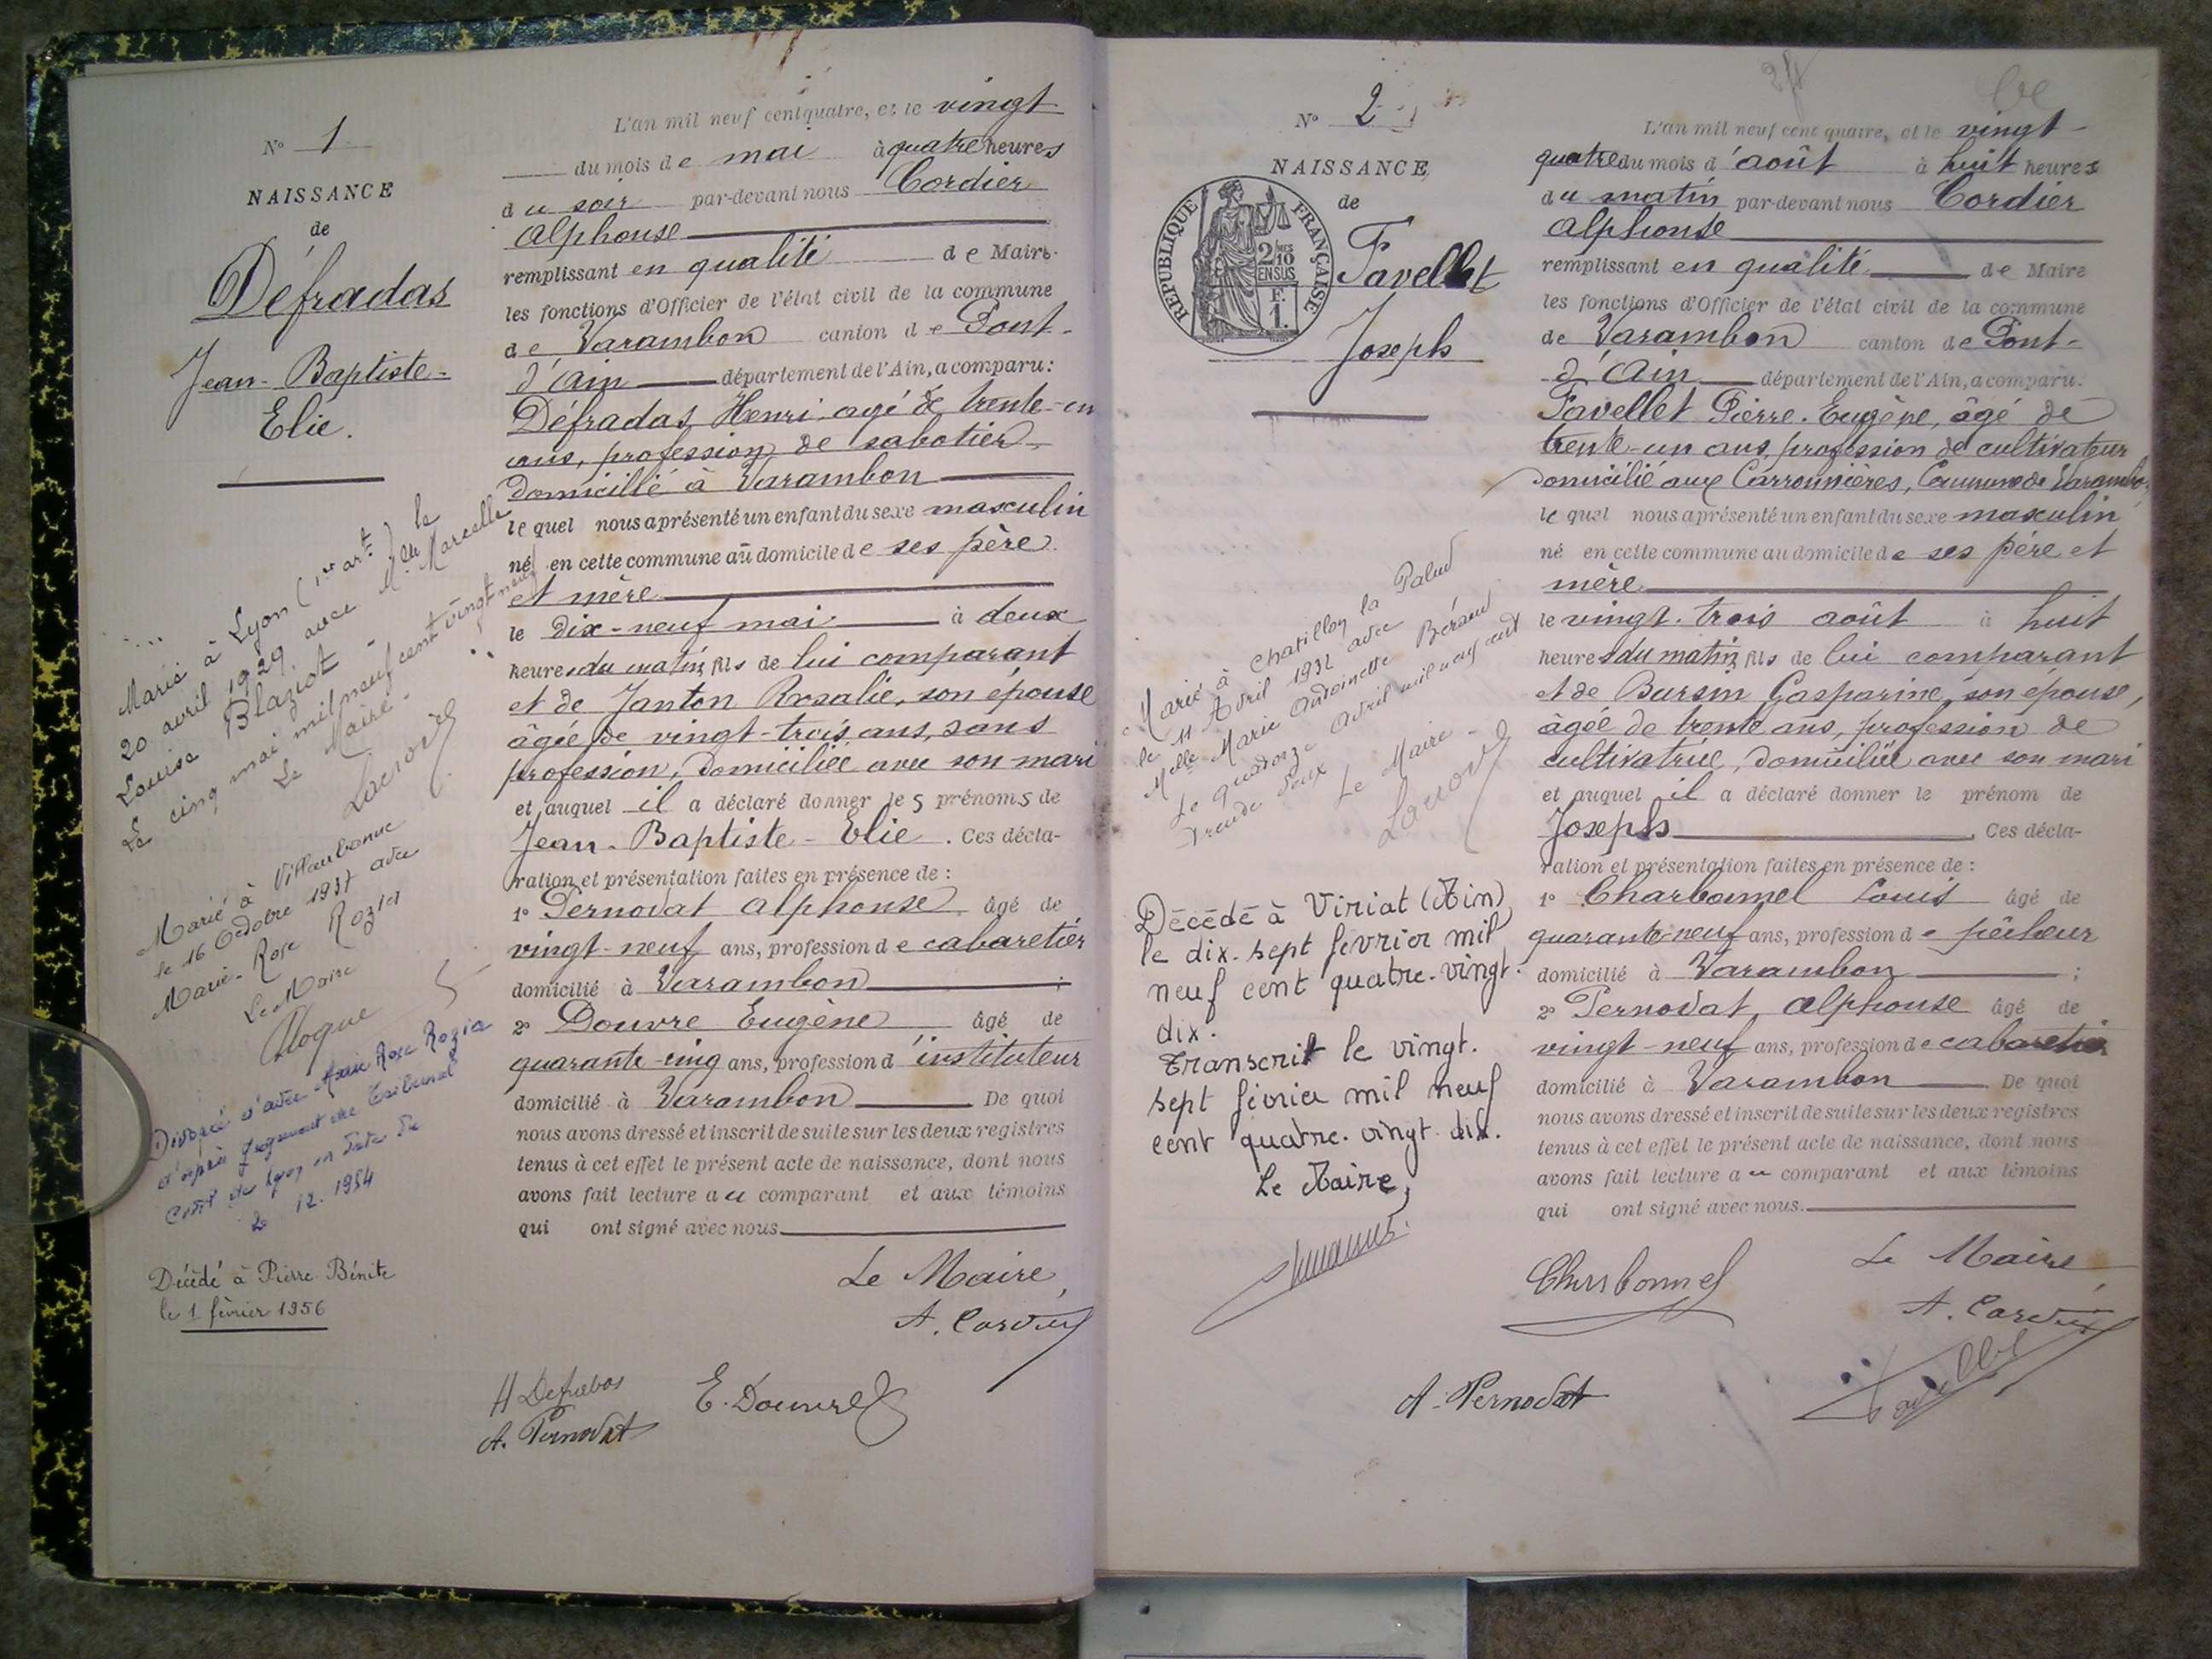 N° 1
NAISSANCE
de
Défradas
Jean-Baptiste-
Elie.
Marié à Lyon (1er art) le
20 avril 1929 avec Mlle Marcelle
Louise Blaziot -
Le cinq mai mil neuf cent vingt neuf
Le Maire -
Lacroix
Marié à Villeurbanne
le 16 Octobre 1937 avec
Marie-Rose Rozia
Le Maire
Divorcé d'avec Marie Rose Rozia
d'après jugement du Tribunal
civil de Lyon en date du
12. 1954
Décédé à Pierre Bénite
le 1 février 1956
L'an mil neuf cent quatre, et le vingt
du mois de mai à quatre heures
du soir par-devant nous Cordier
Alphonse
remplissant en qualité de Maire
les fonctions d'Officier de l'état civil de la commune
de Varambon canton de Pont-
d'Ain département de l'Ain, a comparu:
Défradas Henri agé de trente-un
ans, profession de sabotier
domicilié à Varambon
lequel nous a présenté un enfant du sexe masculin
né en cette commune au domicile de ses père
et mère
le dix-neuf mai à deux
heures du matin, fils de lui comparant
et de Janton Rosalie, son épouse
âgée de vingt-trois ans, sans
profession, domiciliée avec son mari
et auquel il a déclaré donner les prénoms de
Jean-Baptiste-Elie. Ces décla-
ration et présentation faites en présence de :
1° Pernodat Alphonse âgé de
vingt-neuf ans, profession de cabaretier
domicilié à Varambon ;
2° Douvre Eugène âgé de
quarante-cinq ans, profession d'instituteur
domicilié à Varambon De quoi
nous avons dressé et inscrit de suite sur les deux registres
tenus à cet effet le présent acte de naissance, dont nous
avons fait lecture au comparant et aux témoins
qui ont signé avec nous
Le Maire,
A. Cordier
H Defradas E. Douvre
A. Pernodat
N° 2
NAISSANCE
de
RÉPUBLIQUE FRANÇAISE
2/10 MES
EN SUS
F.
1.
Favellet
Joseph
Marié à Chatillon la Palud
le 11 Avril 1932 avec
Melle Marie Antoinette Béraud
Le quatorze avril mil neuf cent
trente deux
Le Maire -
Lacroix
Décédé à Viriat (Ain)
le dix-sept février mil
neuf cent quatre-vingt-
dix.
Transcrit le vingt-
sept février mil neuf
cent quatre-vingt dix.
Le Maire,
L'an mil neuf cent quatre, et le vingt-
quatre du mois d'août à huit heures
du matin par-devant nous Cordier
Alphonse
remplissant en qualité de Maire
les fonctions d'Officier de l'état civil de la commune
de Varambon canton de Pont-
d'Ain département de l'Ain, a comparu:
Favellet Pierre-Eugène, âgé de
trente-un ans, profession de cultivateur
domicilié aux Carronnières, Commune de Varambon
lequel nous a présenté un enfant du sexe masculin
né en cette commune au domicile de ses père et
mère
le vingt-trois août à huit
heures du matin, fils de lui comparant
et de Bursin Gasparine, son épouse,
âgée de trente ans, profession de
cultivatrice, domiciliée avec son mari
et auquel il a déclaré donner le prénom de
Joseph. Ces décla-
ration et présentation faites en présence de :
1° Charbonnel Louis âgé de
quarante-neuf ans, profession de pêcheur
domicilié à Varambon ;
2° Pernodat Alphonse âgé de
vingt-neuf ans, profession de cabaretier
domicilié à Varambon De quoi
nous avons dressé et inscrit de suite sur les deux registres
tenus à cet effet le présent acte de naissance, dont nous
avons fait lecture au comparant et aux témoins
qui ont signé avec nous.
Le Maire,
Charbonnel A. Cordier
A. Pernodat Favellet